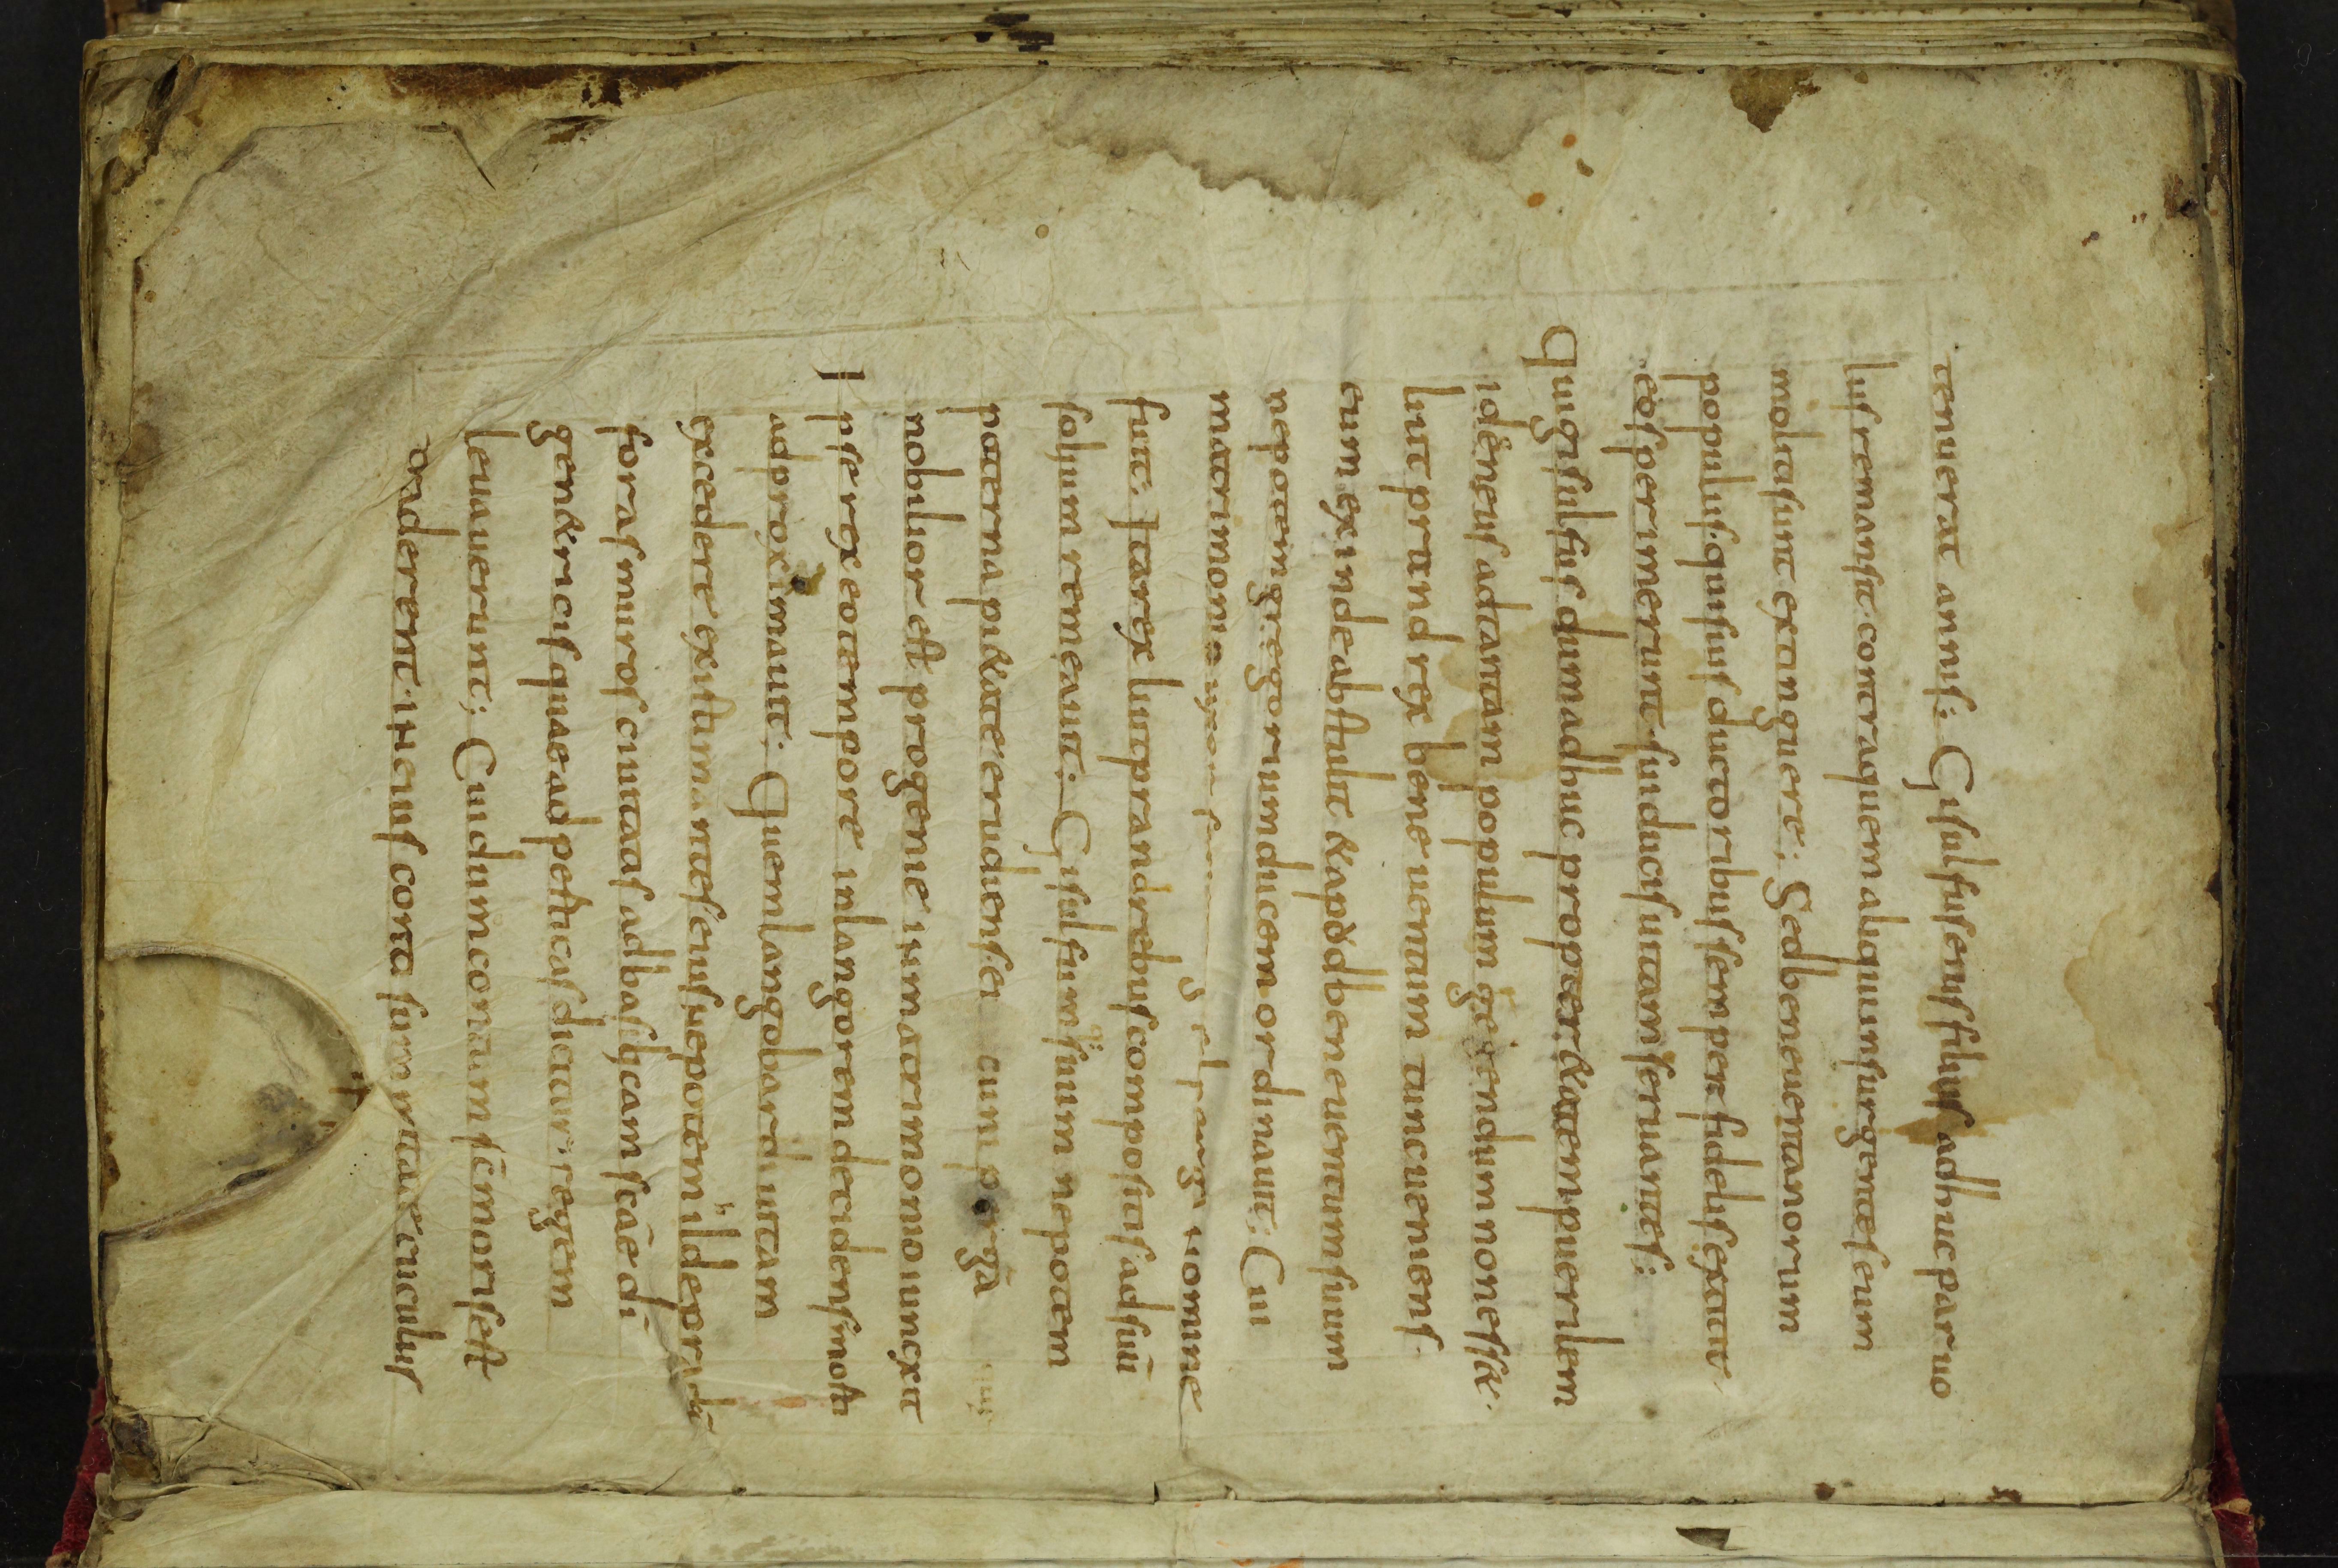 tenuerat annis; Gisulfus eius filius adhuc paruo
lus remansit contra quem aliqui insurgentes eum
moliti sunt extinguere; Sed beneuentanorum
populus qui suis ductoribus semper fidelis extitit
eos perimerunt sui ducis uitam seruantes;
Qui gisulfus dum adhuc propter &atem puerilem
idoneus ad tantam populum regendum non ess&.
liutprand rex beneuentum tunc ueniens.
eum exinde abstulit & apud beneuentum suum
nepotem gregorium ducem ordinauit; Cui
matrimonio nomine
fuit. Ita rex liutprand rebus compositis ad suū
solium remeauit; Gisulfum suum nepotem
paterna pi&ate erudiens ei cum
nobilior est progenie in matrimonio iunxit
Ipse rex eo tempore in langorem decidens mor
ad proximauit; Quem langobardi uitam
excedere existimantes eius nepotem ildeprā
foras muros ciuitatis ad basilicam scāe dī
gen&ricis quae ad perticas dicitur regem
leuauerunt; Cui dum contum sic moris est
traderent. in eius conti summitate cuculus